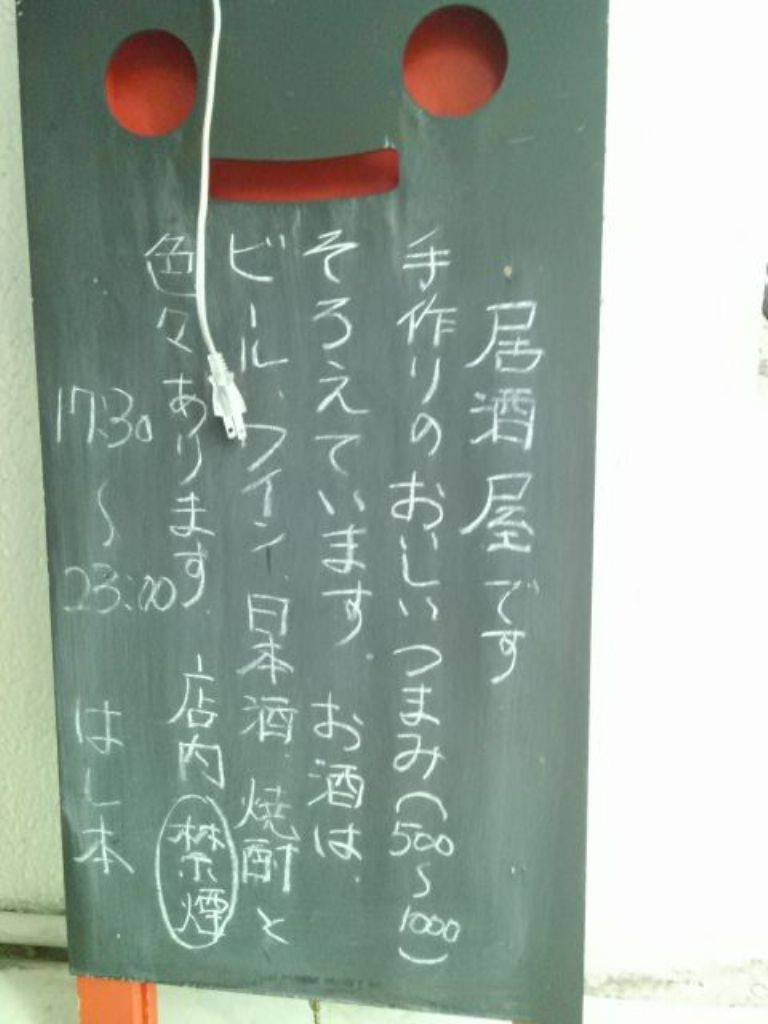 居酒屋です
手作りのおいしいつまみ(500〜1000)
そろえています。お酒は、
ビール、ワイン、日本酒、焼酎と
色々あります。店内禁煙
17:30〜23:00 はし本